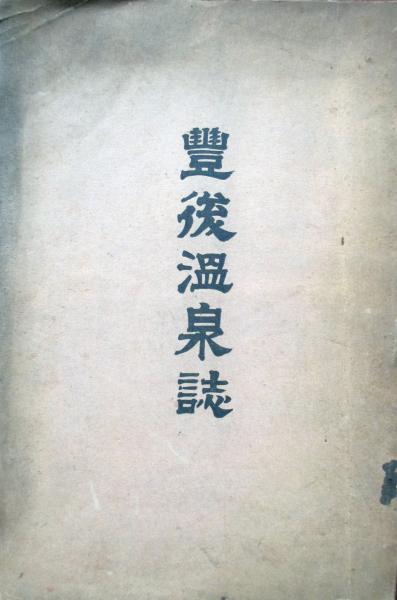 豐後溫泉誌